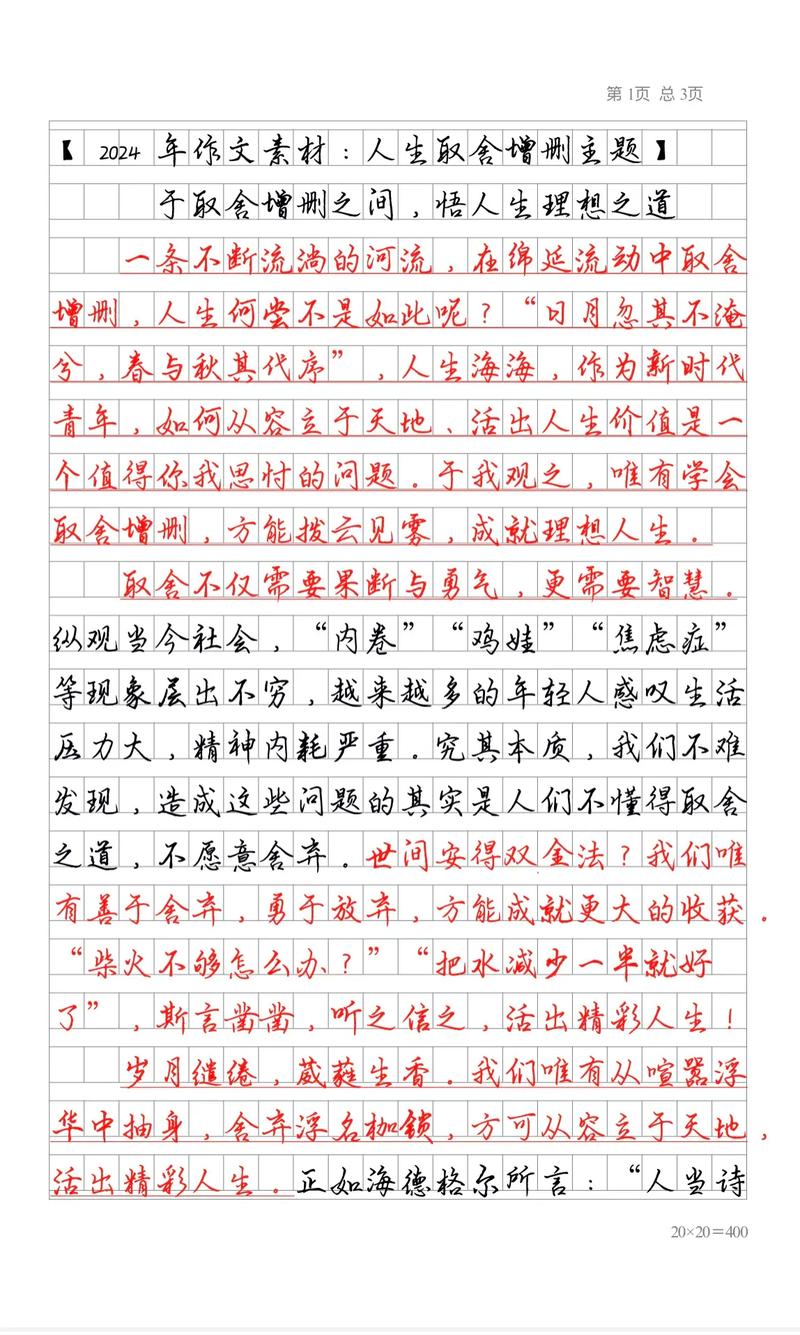 第1页 总3页
【2024年作文素材：人生取舍增删主题】
于取舍增删之间，悟人生理想之道
一条不断流淌的河流，在绵延流动中取舍
增删，人生何尝不是如此呢？“日月忽其不淹
兮，春与秋其代序”，人生海海，作为新时代
青年，如何从容立于天地、活出人生价值是一
个值得你我思忖的问题。于我观之，唯有学会
取舍增删，方能拨云见雾，成就理想人生。
取舍不仅需要果断与勇气，更需要智慧。
纵观当今社会，“内卷”“鸡娃”“焦虑症”
等现象层出不穷，越来越多的年轻人感叹生活
压力大，精神内耗严重。究其本质，我们不难
发现，造成这些问题的其实是人们不懂得取舍
之道，不愿意舍弃。世间安得双全法？我们唯
有善于舍弃，勇于放弃，方能成就更大的收获。
“柴火不够怎么办？”“把水减少一半就好
了”，斯言凿凿，听之信之，活出精彩人生！
岁月缱绻，葳蕤生香。我们唯有从喧嚣浮
华中抽身，舍弃浮名枷锁，方可从容立于天地，
活出精彩人生。正如海德格尔所言：“人当诗
20×20＝400